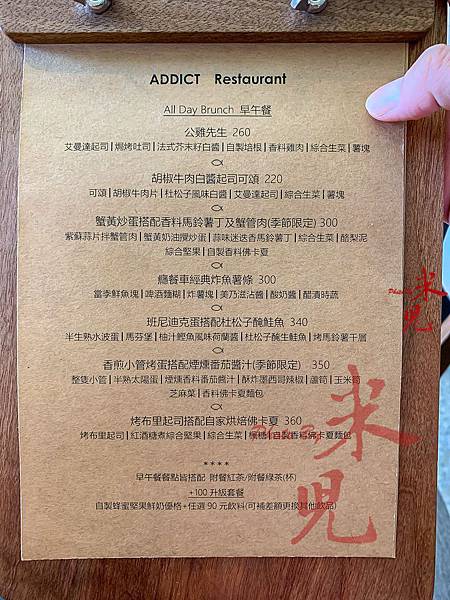 ADDICT Restaurant
All Day Brunch 早午餐
公雞先生 260
艾曼達起司|焗烤吐司|法式芥末籽白醬|自製培根|香料雞肉|綜合生菜|薯塊
胡椒牛肉白醬起司可頌 220
可頌|胡椒牛肉片|杜松子風味白醬|艾曼達起司|綜合生菜|薯塊
蟹黃炒蛋搭配香料馬鈴薯丁及蟹管肉(季節限定) 300
紫蘇蒜片拌蟹管肉|蟹黃奶油攪炒蛋|蒜味迷迭香馬鈴薯丁|綜合生菜|酪梨泥
綜合堅果|自製香料佛卡夏
癮餐車經典炸魚薯條 300
當季鮮魚塊|啤酒麵糊|炸薯塊|美乃滋沾醬|酸奶醬|醋漬時蔬
班尼迪克蛋搭配杜松子醃鮭魚 340
半生熟水波蛋|馬芬堡|柚汁鰹魚風味荷蘭醬|杜松子醃鮭魚|烤馬鈴薯千層
香煎小管烤蛋搭配煙燻番茄醬汁(季節限定) 350
整隻小管|半熟太陽蛋|煙燻香料番茄醬汁|酥炸墨西哥辣椒|蘆筍|玉米筍
芝麻葉|香料佛卡夏麵包
烤布里起司搭配自家烘焙佛卡夏 360
烤布里起司|紅酒糖煮綜合堅果|綜合生菜|蜂糖|自製香料佛卡夏麵包
****
早午餐餐點皆搭配 附餐紅茶/附餐綠茶(杯)
+100 升級套餐
自製蜂蜜堅果鮮奶優格+任選 90 元飲料(可補差額更換其他飲品)
米兒
米兒